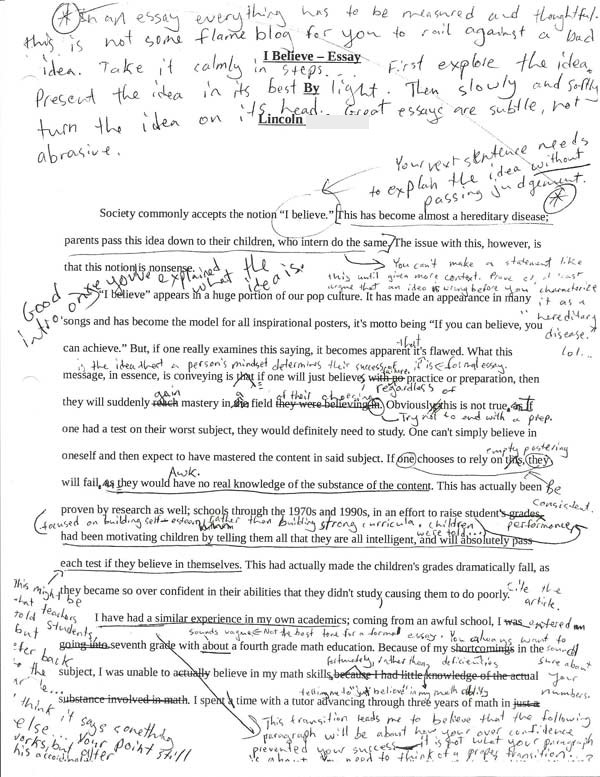 * In an essay everything has to be measured and thoughtful.
this is not some flame blog for you to rail against a bad
idea. Take it calmly in steps... First explore the idea.
I Believe – Essay
Present the idea in its best light. Then slowly and softly
By
turn the idea on its head. Great essays are subtle, not
Lincoln
abrasive.
Your next sentence needs
to explain the idea without
passing judgement.
*
Society commonly accepts the notion “I believe.” This has become almost a hereditary disease;
parents pass this idea down to their children, who intern do the same. The issue with this, however, is
that this notion is nonsense.
You can't make a statement like
this until given more context. Prove or at least
argue that an idea is wrong before you characterize
it as a
"hereditary
disease."
lol...
Good
intro once you've explained
what the
idea is.
“I believe” appears in a huge portion of our pop culture. It has made an appearance in many
songs and has become the model for all inspirational posters, it's motto being “If you can believe, you
can achieve.” But, if one really examines this saying, it becomes apparent it's flawed. What this
that
is the idea that a person's mindset determines their success or failure.
it is ← formal essay.
message, in essence, is conveying is that if one will just believe, with no practice or preparation, then
regardless of
they will suddenly reach mastery in the field they were believing in. Obviously this is not true, as if
gain
of their choosing
It
Try not to end with a prep.
one had a test on their worst subject, they would definitely need to study. One can't simply believe in
oneself and then expect to have mastered the content in said subject. If one chooses to rely on this, they
empty posturing
Be
consistent.
will fail, as they would have no real knowledge of the substance of the content. This has actually been
Awk.
proven by research as well; schools through the 1970s and 1990s, in an effort to raise student's grades,
performance
focused on building self-esteem rather than building strong curricula. Children
were told...
had been motivating children by telling them all that they are all intelligent, and will absolutely pass
each test if they believe in themselves. This had actually made the children's grades dramatically fall, as
they became so over confident in their abilities that they didn't study causing them to do poorly.
Cite the
article.
This might be
what teachers
told students
but
I have had a similar experience in my own academics; coming from an awful school, I was
entered
going into seventh grade with about a fourth grade math education. Because of my shortcomings in the
sounds vague ← Not the best tone for a formal essay. You always want to
sound
sure about
your
numbers.
fortunately, rather than deficiencies
subject, I was unable to actually believe in my math skills, because I had little knowledge of the actual
telling me to "just believe" in my math ability
substance involved in math. I spent a time with a tutor advancing through three years of math in just a
This transition leads me to believe that the following
paragraph will be about how your over confidence
prevented your success — it is not what your paragraph
is about. You need to think of a proper transition...?
I think it says something
else... your point still
works, but